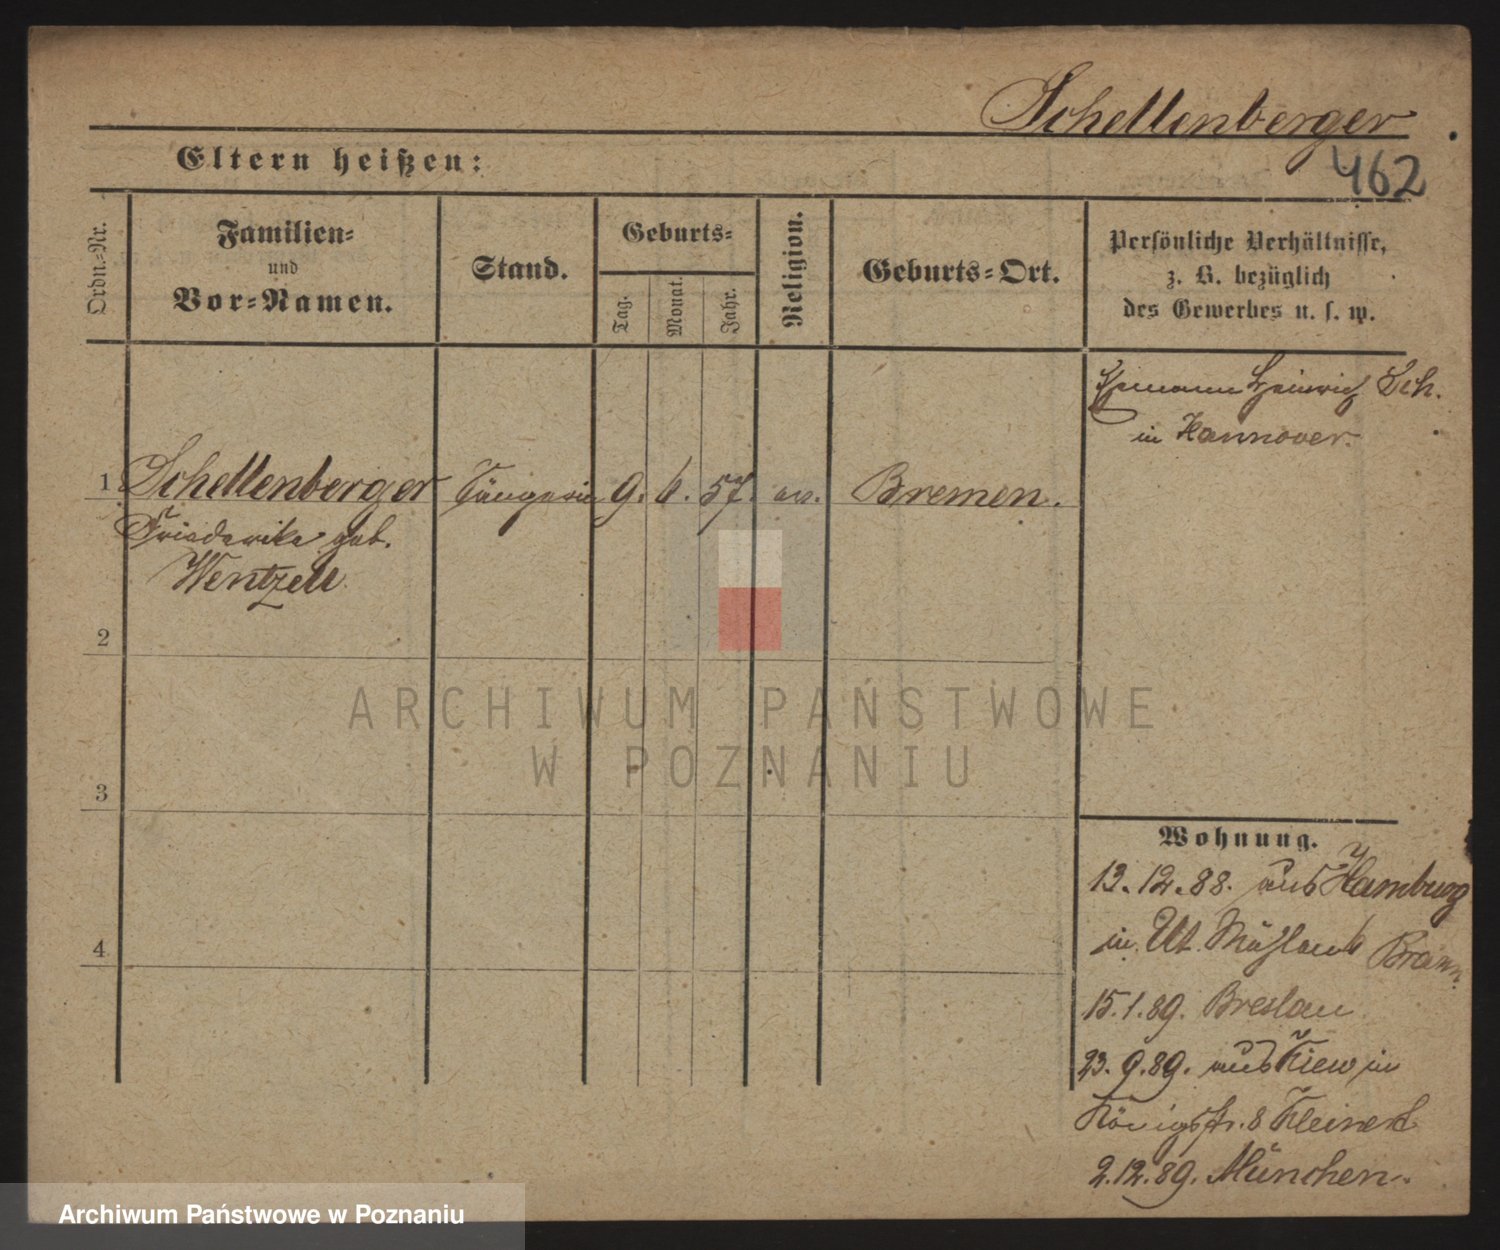 Schellenberger
462
Eltern heißen:
Ordn.-Nr.
Familien-
und
Vor-Namen.
Stand.
Geburts-
Tag.
Monat.
Jahr.
Religion.
Geburts-Ort.
Persönliche Verhältnisse,
z. B. bezüglich
des Gewerbes u. s. w.
Ehemann Heinrich Sch.
in Hannover.
1 Schellenberger Sängerin 9. 6. 57. ev. Bremen.
Friederike geb.
Wentzell
2
3
4
Wohnung.
13.12.88. aus Hamburg
in Ut. Mühlenst
15.1.89. Breslau
23.9.89. aus Kiew in
Königsstr. 8 Kleinert
2.12.89. München.
ARCHIWUM PAŃSTWOWE
W POZNANIU
Archiwum Państwowe w Poznaniu